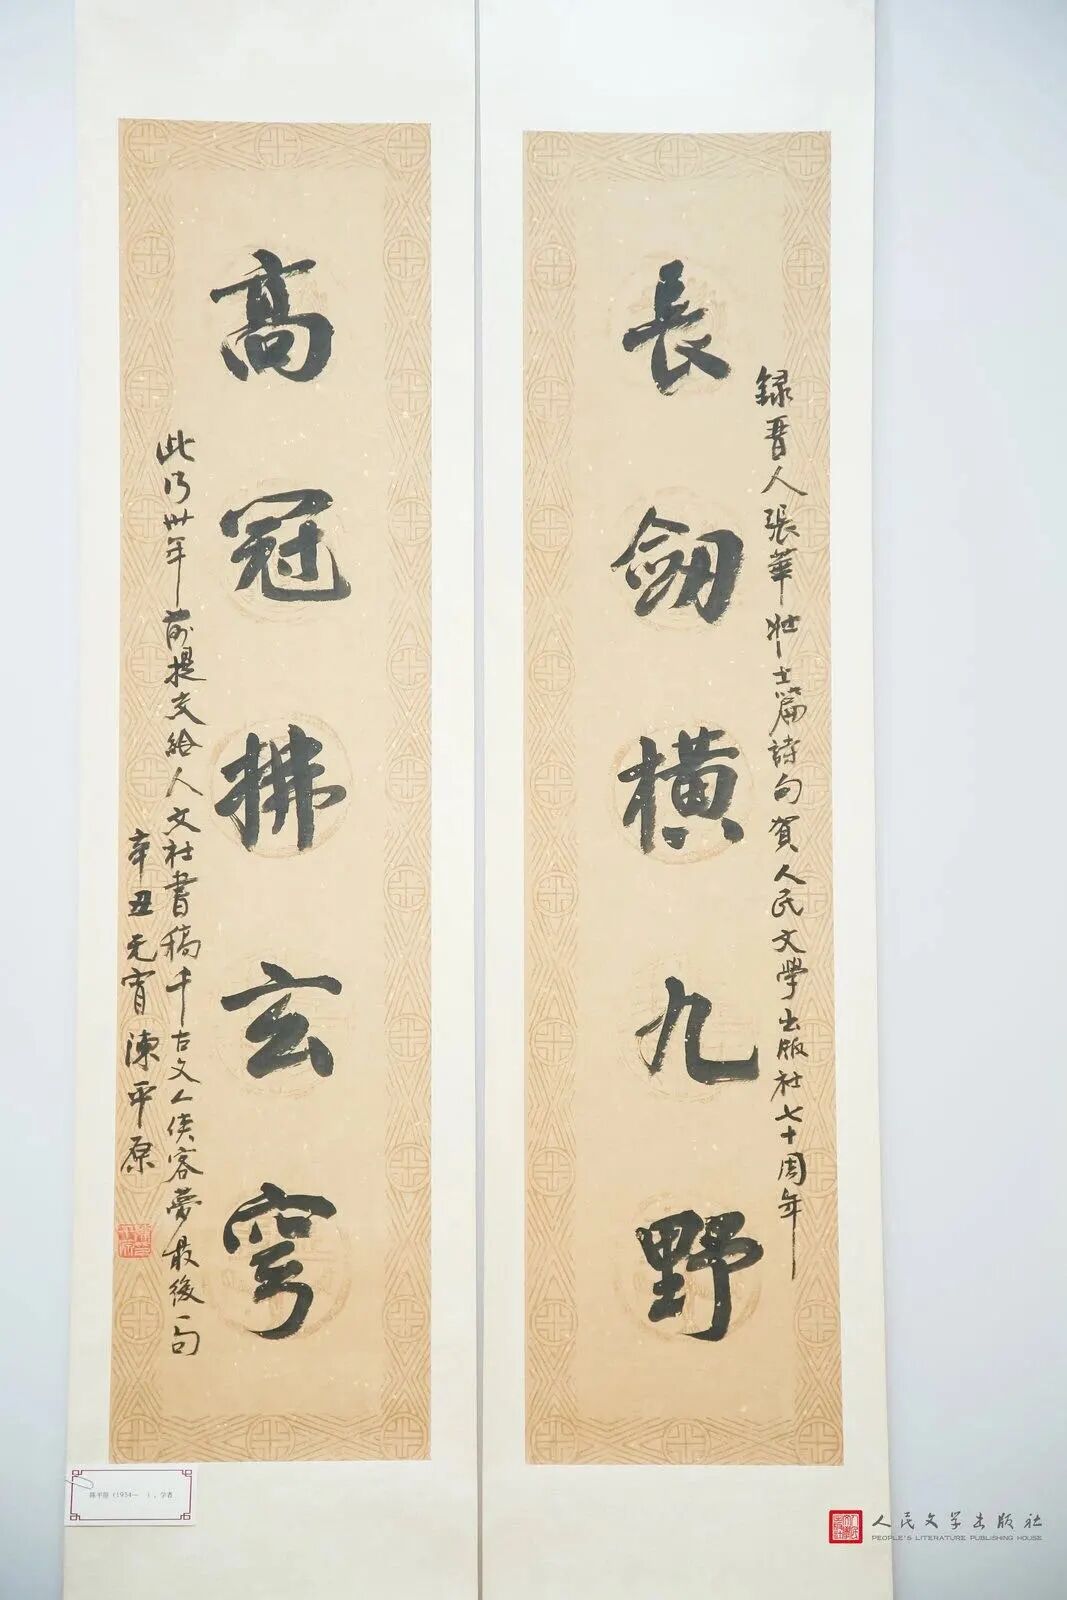 長劒橫九野
録晉人張華壯士篇詩句賀人民文學出版社七十周年
高冠拂玄穹
此乃卅年前提交給人文社書稿千古文人俠客夢最後一句
辛丑元宵陳平原
陈平原（1954—　），学者
人民文学出版社
PEOPLE'S LITERATURE PUBLISHING HOUSE